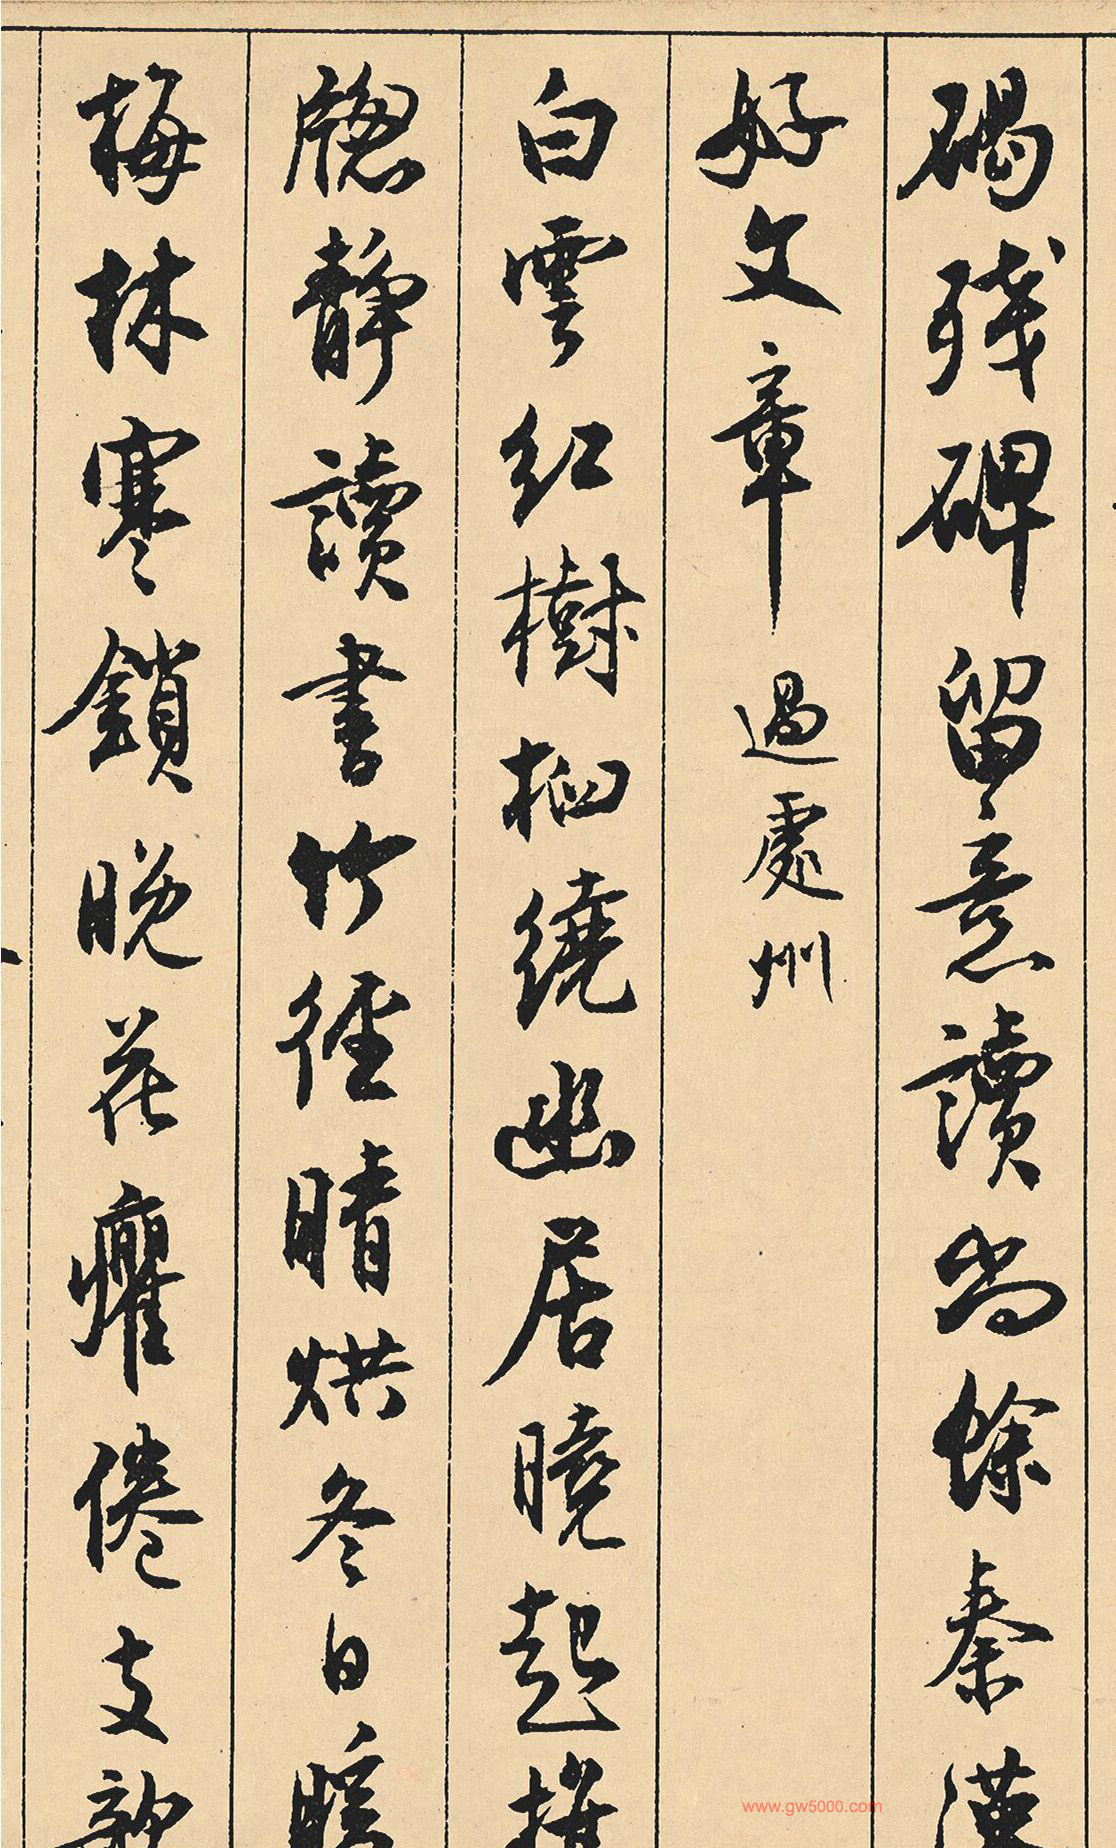 碣残碑留意讀尚餘秦漢
好文章 過處州
白雲紅樹栖繞幽居曉起
牕靜讀書竹徑晴烘冬日暖
梅林寒鎖晚花癯倦支
www.gw5000.com